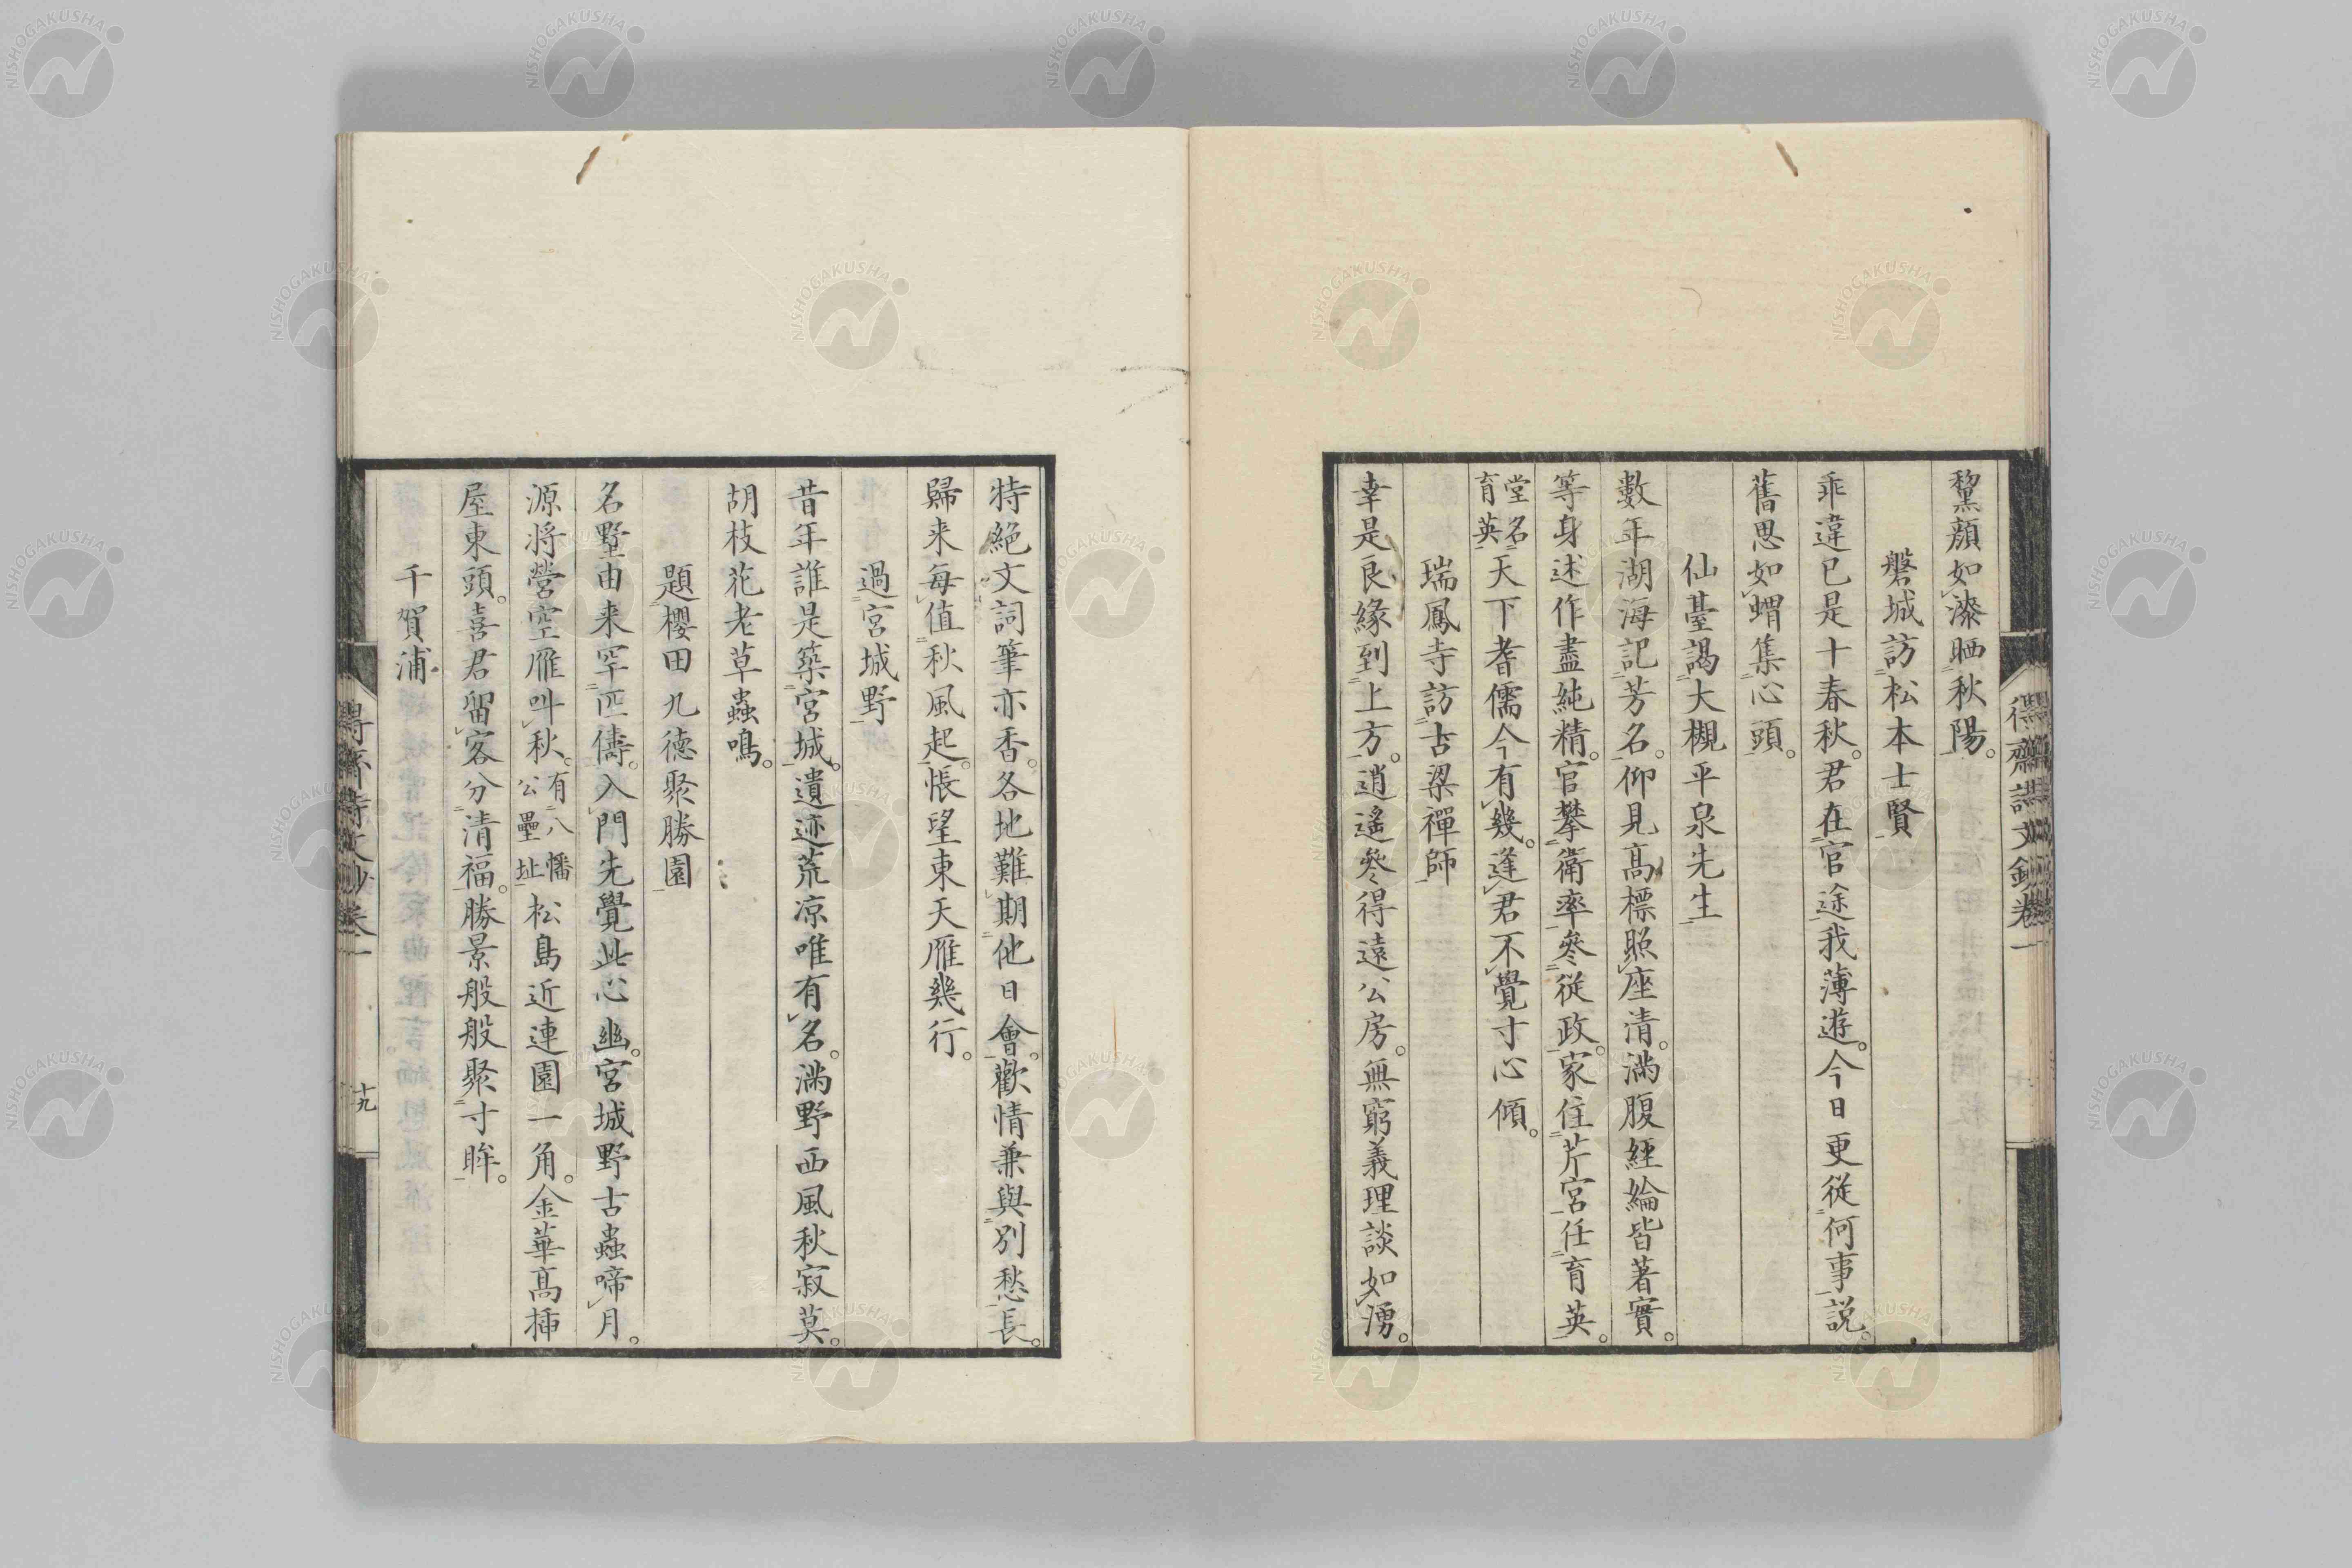 黧顏如漆晒秋陽。
磐城訪松本士賢
乖違已是十春秋。君在官途我薄遊。今日更從何事說。
舊思如蝟集心頭。
仙臺謁大槻平泉先生
數年湖海記芳名。仰見高標照座清。滿腹經綸皆著實。
等身述作盡純精。官攀衛率參從政。家住芹宮任育英。
堂名育英天下耆儒今有幾。逢君不覺寸心傾。
瑞鳳寺訪古梁禪師
幸是良緣到上方。逍遙參得遠公房。無窮義理談如湧。
特絕文詞筆亦香。各地難期他日會。歡情兼與別愁長。
歸来每值秋風起。悵望東天雁幾行。
過宮城野
昔年誰是築宮城。遺迹荒凉唯有名。滿野西風秋寂莫。
胡枝花老草蟲鳴。
題櫻田九德聚勝園
名墅由来罕匹儔。入門先覺此心幽。宮城野古蟲啼月。
源将營空雁叫秋。有八幡公壘址松島近連園一角。金華高揷
屋東頭。喜君留客分清福。勝景般般聚寸眸。
千賀浦
得齋詩文鈔卷一
得齋詩文鈔卷一
十九
NISHOGAKUSHA